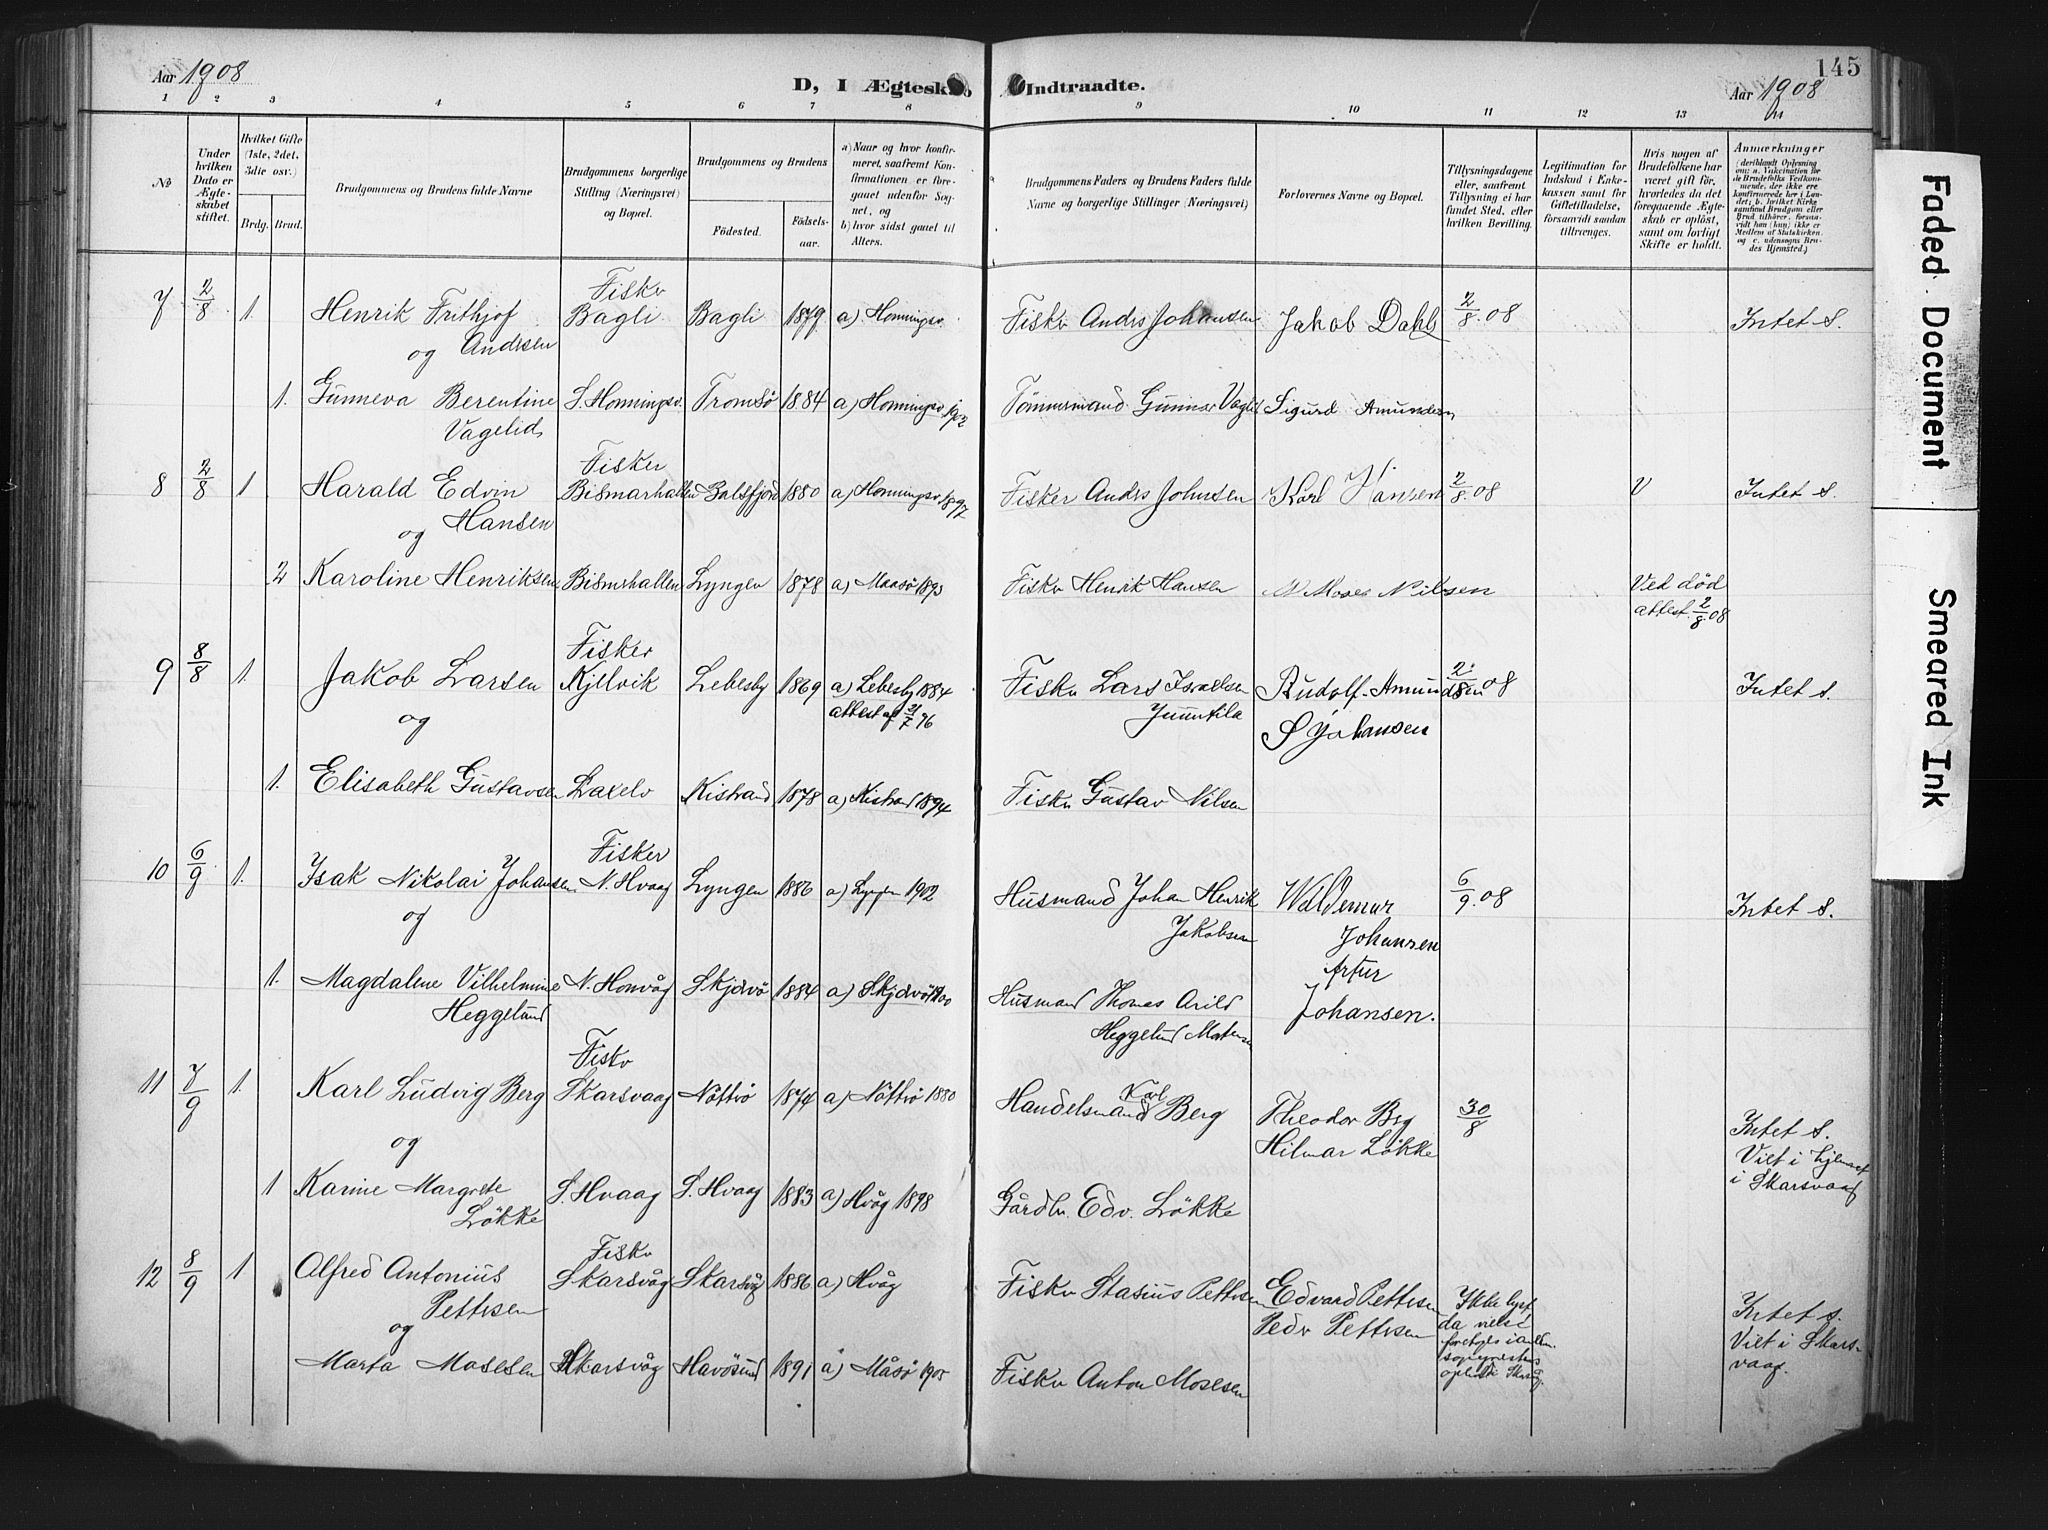 Aar 1908
D, I Ægtesk
Indtraadte.
Aar 1908
145
1 2 3 4 5 6 7 8 9 10 11 12 13
No
Under hvilken Dato er Ægteskabet stiftet.
Hvilket Gifte (1ste, 2det, 3die osv.)
Brdg. Brud.
Brudgommens og Brudens fulde Navne
Brudgommens borgerlige Stilling (Næringsvei) og Bopæl.
Brudgommens og Brudens
Födested.
Födselsaar.
a) Naar og hvor konfirmeret, saafremt Konfirmationen er foregaaet udenfor Sognet, og
b) hvor sidst gaaet til Alters.
Brudgommens Faders og Brudens Faders fulde Navne og borgerlige Stillinger (Næringsvei)
Forlovernes Navne og Bopæl.
Tillysningsdagene eller, saafremt Tillysning ei har fundet Sted, efter hvilken Bevilling.
Legitimation for Indskud i Enkekassen samt for Giftetilladelse, forsaavidt saadan tiltrænges.
Hvis nogen af Brudefolkene har været gift för, hvorledes da det foregaaende Ægteskab er oplöst, samt om lovligt Skifte er holdt.
Anmærkninger
(deriblandt Oplysning om: a. Vakcination for de Brudefolks Vedkommende, der ikke ere konfirmerede her i Landet; b. hvilket Kirkesamfund Brudgom eller Brud tilhörer, forsaavidt han (hun) ikke er Medlem af Statskirken, og c. udensogns Brudes Hjemsted.)
7 2/8 1 Henrik Frithjof Andrsen Fiskr Bagli Bagli 1879 a) Honningsv. Fiskr Andrs Johansen Jakob Dahl 2/8.08 Intet s.
og
1. Gunneva Berentine Vagelid S. Honningsv. Tromsö 1884 a) Honningsv 1902 Tömmermand Gunnar Sigurd Amundsen
8 2/8 1 Harald Edvin Hansen Fisker Bismarhallen Balsfjord 1880 a) Honningsv 1897 Fisker Andrs Johnsen Karl Hansen 2/8.08 V Intet s.
og
2 Karoline Henriksen Bismrhallen Lyngen 1878 a) Maasö 1893 Fiskr Henrik Hansen Moses Nilsen Ved död attest. 2/8.08
9 8/8 1 Jakob Larsen Fisker Kjelvik Lebesby 1869 a) Lebesby 1884 attest af 21/7 96 Fiskr Lars Israelsen Rudolf Amundsen 2/8.08 Intet s.
og S Johansen
1. Elisabeth Gustavsen Laxelv Kistrand 1878 a) Kistrand 1894 Fiskr Gustav Nilsen
10 6/9 1. Isak Nikolai Johansen Fisker N. Hvaag Lyngen 1886 a) Lyngen 1902 Husmand Johan Henrik Jakobsen Waldemar Johansen 6/9.08 Intet s.
og Artur Johansen.
1. Magdalene Vilhelmine Heggelund N. Honvåg Skjervö 1884 a) Skjervö 1900 Husmand Thomas Arild Heggelund
11 7/9 1. Karl Ludvig Berg Fiskr Skarsvaag Nöttrö 1874 a) Nöttrö 1880 Handelsmand Karl Berg Theodor Brg 30/8 Intet s.
og Hilmar Lökke Viet i
i Skarsvaag
1 Karine Margrete Lökke S. Hvaag S. Hvaag 1883 a) Hvåg 1898 Gårdbr. Edv. Lökke
12 8/9 1 Alfred Antonius Pettrsen Fiskr Skarsvåg Skarsvåg 1886 a) Hvåg Fiskr Stasius Pettrsen Edvard Pettrsen Ikke lyst Intet s.
og Pedr Pettrsen da vielse Viet i Skarsvaag.
Marta Mosesen Skarsvåg Havösund 1891 a) Måsö 1905 Fiskr Anton Mosesen
Faded Document
Smeared Ink